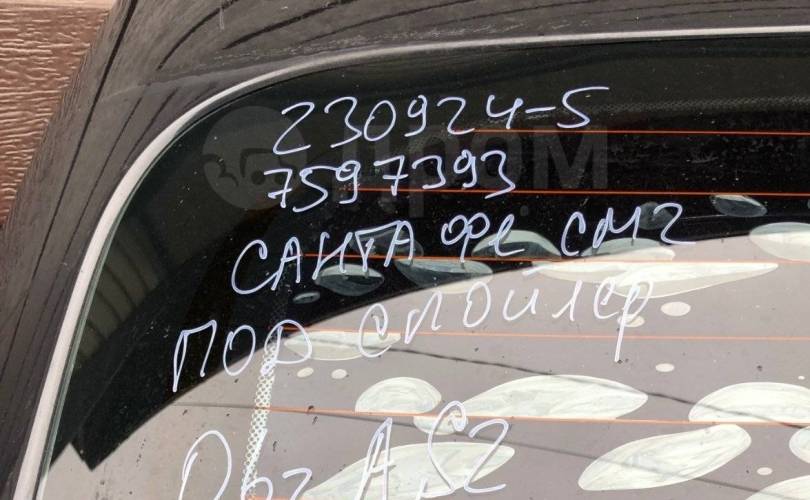 230924-5
7597393
САНТА ФЕ СМ2
ПОД СПОЙЛЕР
Пром